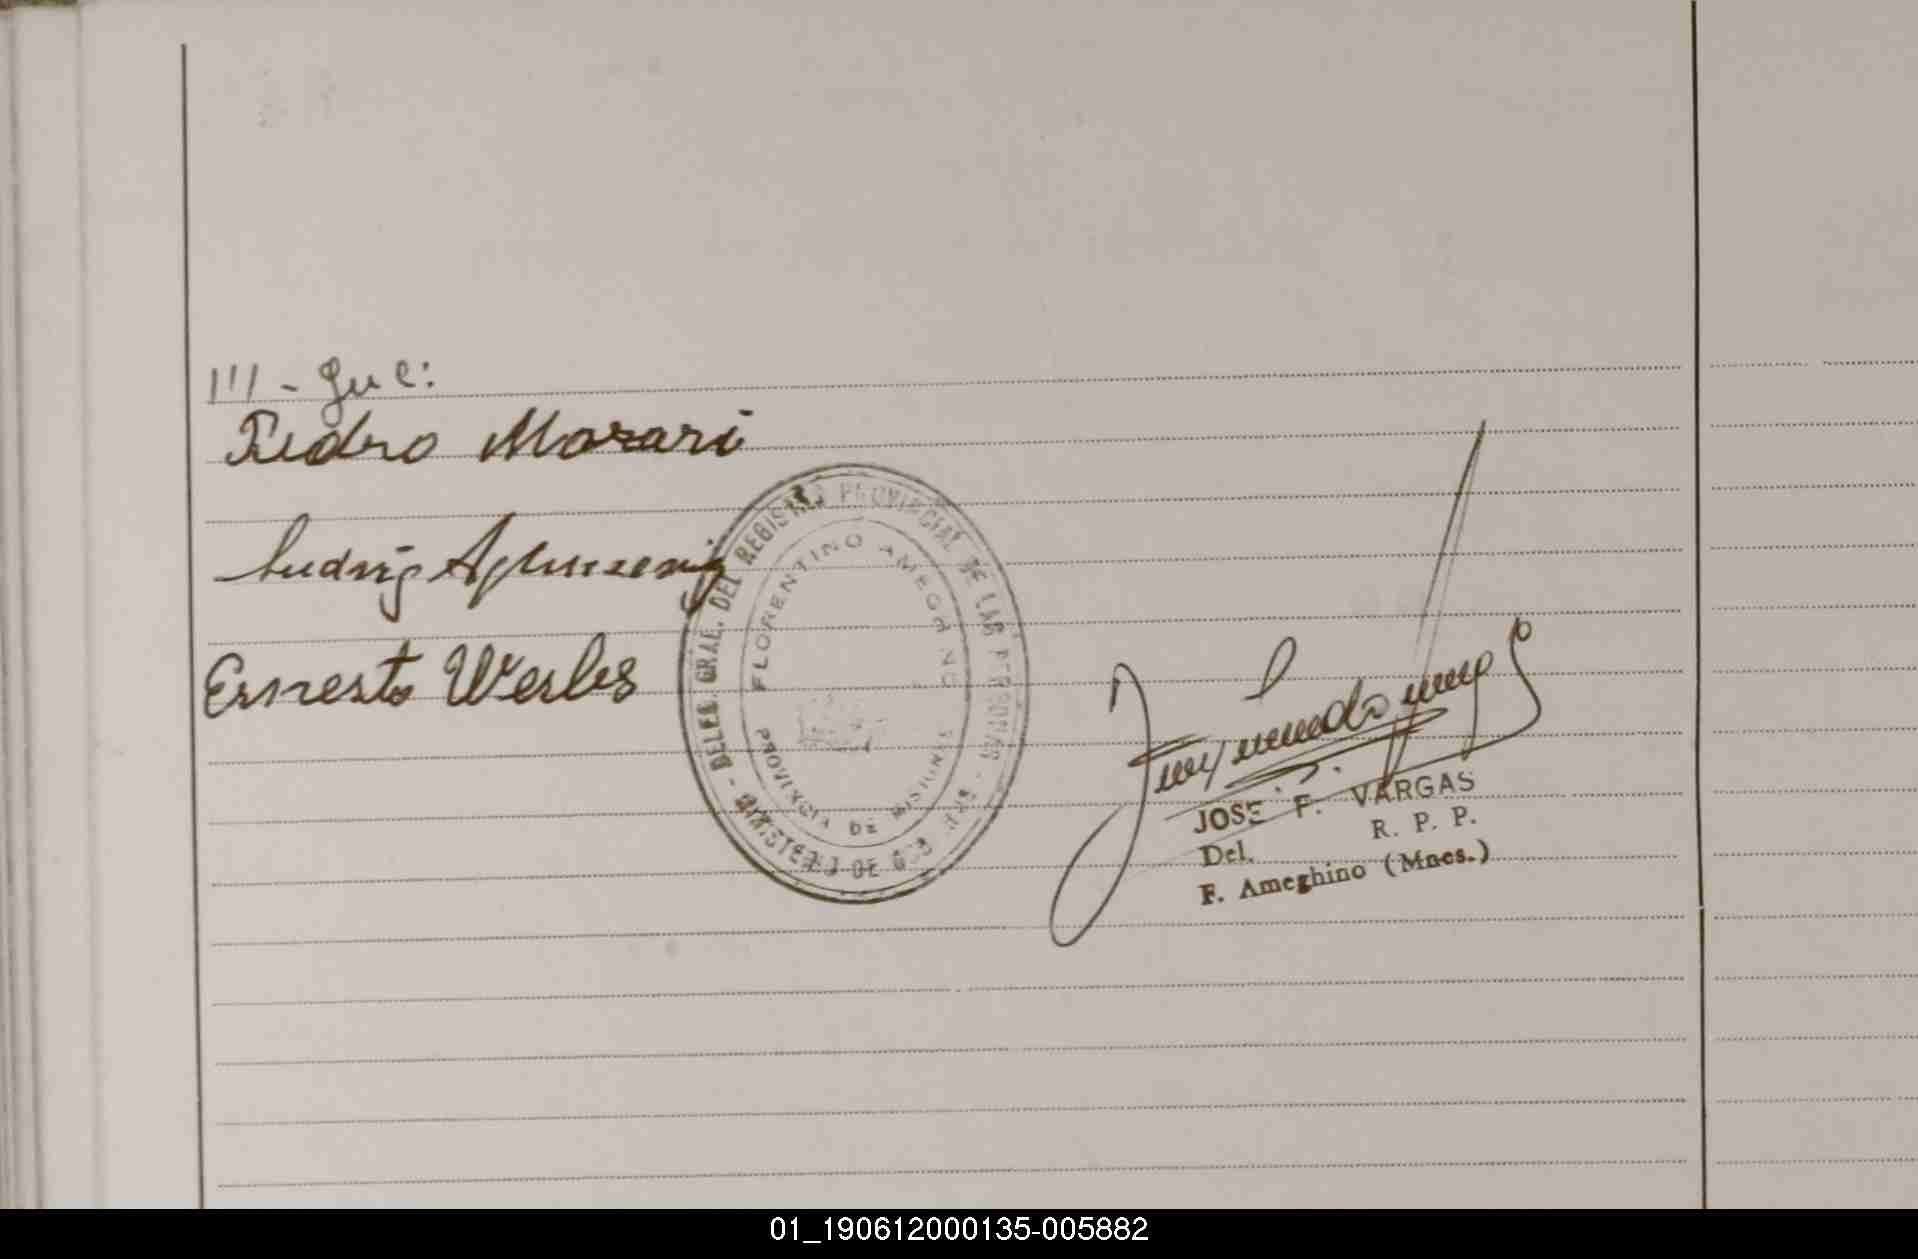 /// - gue:
Pedro Morari
Ludwig
Ernesto Werles
DELEG. GRAL. DEL REGISTRO PROVINCIAL DE LAS PERSONAS - MINISTERIO DE GOB.
FLORENTINO AMEGHINO
PROVINCIA DE MISIONES
JOSE F. VARGAS
Del. R. P. P.
F. Ameghino (Mnes.)
01_190612000135-005882